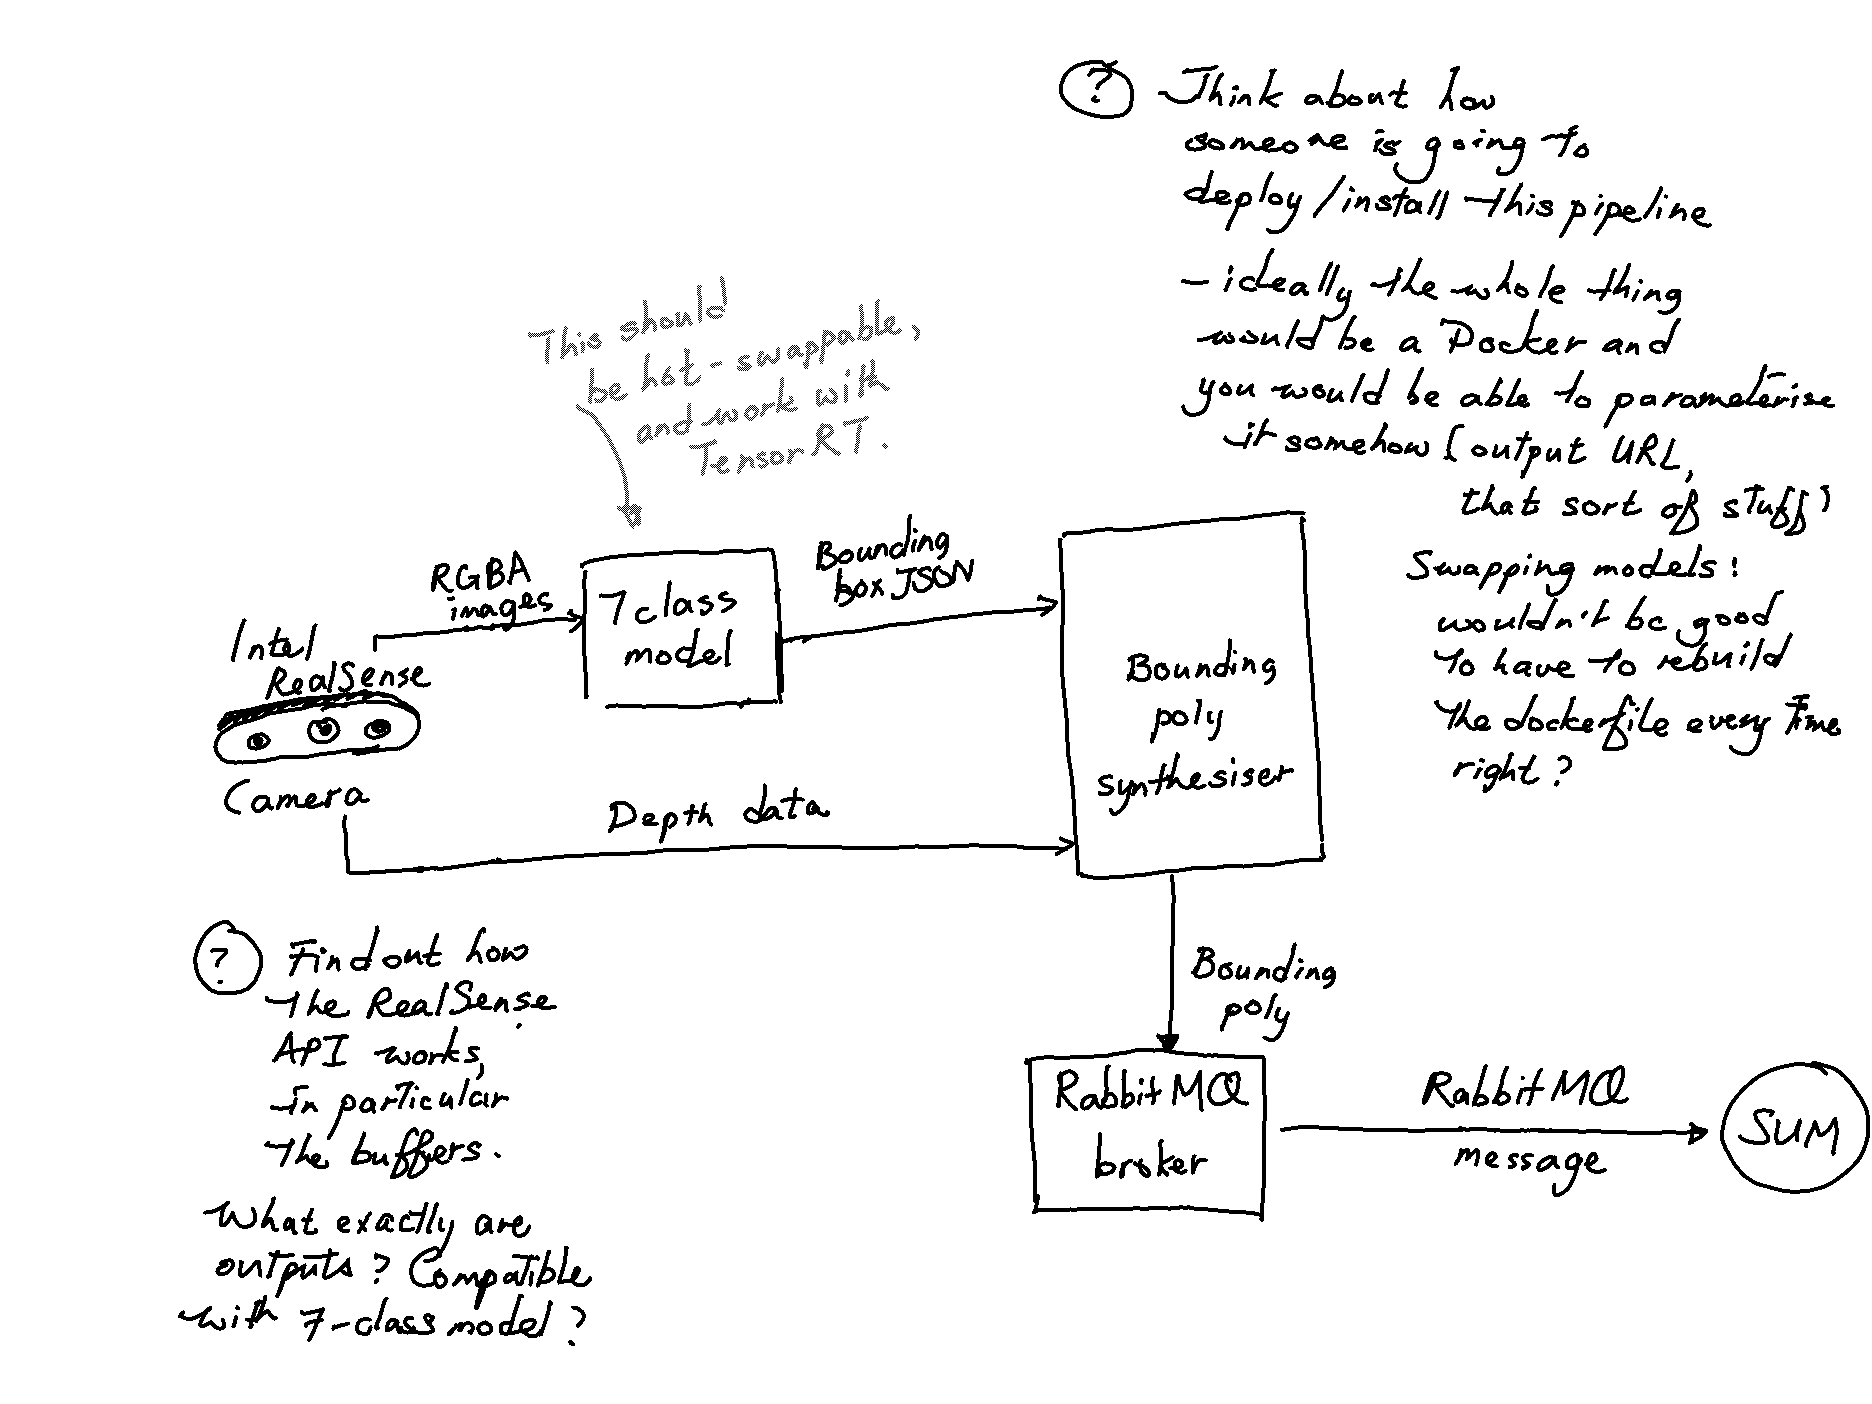 ? Think about how
someone is going to
deploy/install this pipeline
- ideally the whole thing
would be a Docker and
you would be able to parameterise
it somehow (output URL,
that sort of stuff)
Swapping models:
wouldn't be good
to have to rebuild
the dockerfile every time
right?
This should
be hot-swappable,
and work with
TensorRT.
Intel
RealSense
Camera
RGBA
images
7 class
model
Bounding
box JSON
Depth data
Bounding
poly
synthesiser
Bounding
poly
RabbitMQ
broker
RabbitMQ
message
SUM
? Find out how
the RealSense
API works,
in particular
the buffers.
What exactly are
outputs? Compatible
with 7-class model?